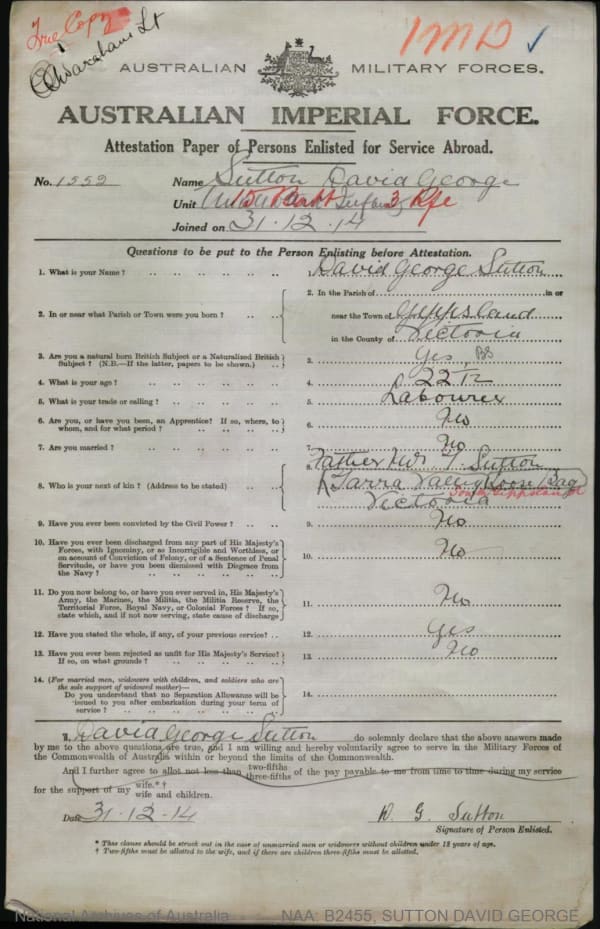 True Copy
1MD
AUSTRALIAN MILITARY FORCES.
AUSTRALIAN IMPERIAL FORCE.
Attestation Paper of Persons Enlisted for Service Abroad.
No. 1552 Name Sutton David George
Unit Infantry
Joined on 31.12.14
Questions to be put to the Person Enlisting before Attestation.
1. What is your Name? 1. David George Sutton
2. In or near what Parish or Town were you born? 2. In the Parish of in or
near the Town of Gippsland
in the County of Victoria
3. Are you a natural born British Subject or a Naturalized British
Subject? (N.B.—If the latter, papers to be shown.) 3. Yes
4. What is your age? 4. 22
5. What is your trade or calling? 5. Labourer
6. Are you, or have you been, an Apprentice? If so, where, to
whom, and for what period? 6. No
7. Are you married? 7. No
8. Who is your next of kin? (Address to be stated) 8. Father Mr T. Sutton
Tarra Valley
Victoria South Gippsland
9. Have you ever been convicted by the Civil Power? 9. No
10. Have you ever been discharged from any part of His Majesty's
Forces, with Ignominy, or as Incorrigible and Worthless, or
on account of Conviction of Felony, or of a Sentence of Penal
Servitude, or have you been dismissed with Disgrace from
the Navy? 10. No
11. Do you now belong to, or have you ever served in, His Majesty's
Army, the Marines, the Militia, the Militia Reserve, the
Territorial Force, Royal Navy, or Colonial Forces? If so,
state which, and if not now serving, state cause of discharge 11. No
12. Have you stated the whole, if any, of your previous service? 12. Yes
13. Have you ever been rejected as unfit for His Majesty's Service?
If so, on what grounds? 13. No
14. (For married men, widowers with children, and soldiers who are
the sole support of widowed mother)—
Do you understand that no Separation Allowance will be
issued to you after embarkation during your term of
service? 14.
I, David George Sutton do solemnly declare that the above answers made
by me to the above questions are true, and I am willing and hereby voluntarily agree to serve in the Military Forces of
the Commonwealth of Australia within or beyond the limits of the Commonwealth.
And I further agree to allot not less than two-fifths three-fifths of the pay payable to me from time to time during my service
for the support of my wife.*† wife and children.
Date 31.12.14 D. G. Sutton
Signature of Person Enlisted.
* This clause should be struck out in the case of unmarried men or widowers without children under 18 years of age.
† Two-fifths must be allotted to the wife, and if there are children three-fifths must be allotted.
National Archives of Australia NAA: B2455, SUTTON DAVID GEORGE